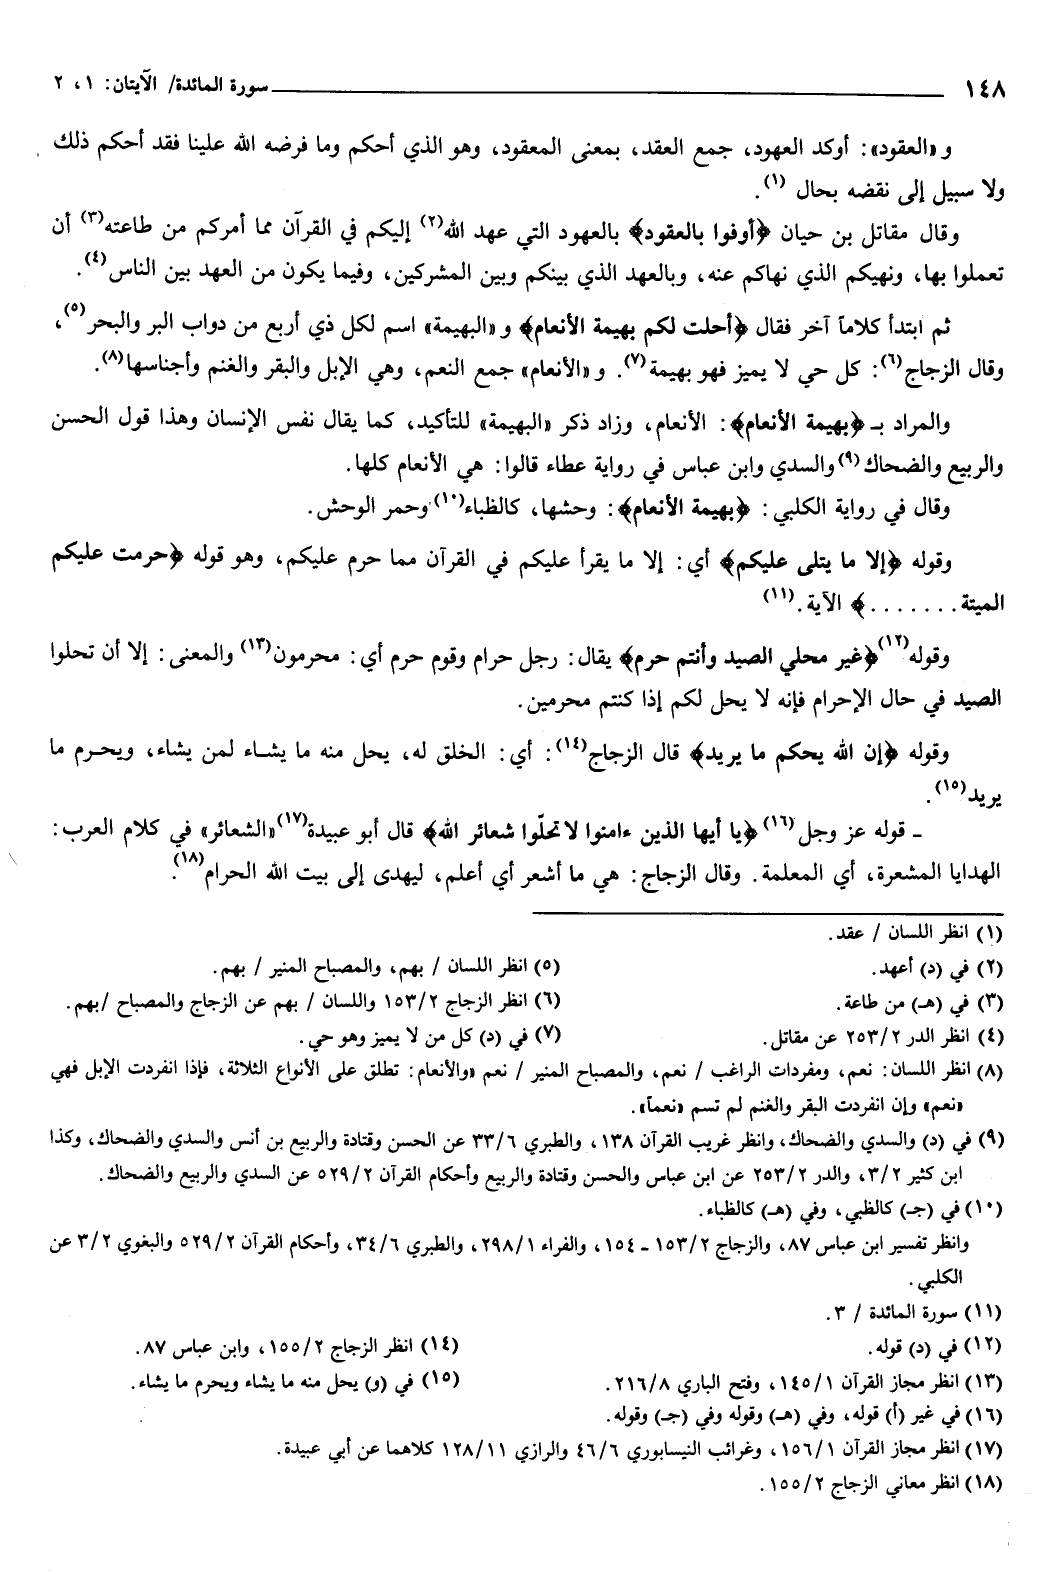 ١٤٨ سورة المائدة/ الآيتان: ١، ٢
و «العقود»: أوكد العهود، جمع العقد، بمعنى المعقود، وهو الذي أحكم وما فرضه الله علينا فقد أحكم ذلك
ولا سبيل إلى نقضه بحال (١).
وقال مقاتل بن حيان ﴿أوفوا بالعقود﴾ بالعهود التي عهد الله(٢) إليكم في القرآن مما أمركم من طاعته(٣) أن
تعملوا بها، ونهيكم الذي نهاكم عنه، وبالعهد الذي بينكم وبين المشركين، وفيما يكون من العهد بين الناس(٤).
ثم ابتدأ كلاماً آخر فقال ﴿أحلت لكم بهيمة الأنعام﴾ و «البهيمة» اسم لكل ذي أربع من دواب البر والبحر(٥)،
وقال الزجاج(٦): كل حي لا يميز فهو بهيمة(٧). و «الأنعام» جمع النعم، وهي الإبل والبقر والغنم وأجناسها(٨).
والمراد بـ ﴿بهيمة الأنعام﴾: الأنعام، وزاد ذكر «البهيمة» للتأكيد، كما يقال نفس الإنسان وهذا قول الحسن
والربيع والضحاك(٩) والسدي وابن عباس في رواية عطاء قالوا: هي الأنعام كلها.
وقال في رواية الكلبي: ﴿بهيمة الأنعام﴾: وحشها، كالظباء(١٠) وحمر الوحش.
وقوله ﴿إلا ما يتلى عليكم﴾ أي: إلا ما يقرأ عليكم في القرآن مما حرم عليكم، وهو قوله ﴿حرمت عليكم
الميتة.......﴾ الآية.(١١)
وقوله(١٢) ﴿غير محلي الصيد وأنتم حرم﴾ يقال: رجل حرام وقوم حرم أي: محرمون(١٣) والمعنى: إلا أن تحلوا
الصيد في حال الإحرام فإنه لا يحل لكم إذا كنتم محرمين.
وقوله ﴿إن الله يحكم ما يريد﴾ قال الزجاج(١٤): أي: الخلق له، يحل منه ما يشاء لمن يشاء، ويحرم ما
يريد(١٥).
ـ قوله عز وجل(١٦) ﴿يا أيها الذين ءامنوا لا تحلّوا شعائر الله﴾ قال أبو عبيدة(١٧) «الشعائر» في كلام العرب:
الهدايا المشعرة، أي المعلمة. وقال الزجاج: هي ما أشعر أي أعلم، ليهدى إلى بيت الله الحرام(١٨).
(١) انظر اللسان / عقد.
(٢) في (د) أعهد.
(٣) في (هـ) من طاعة.
(٤) انظر الدر ٢/ ٢٥٣ عن مقاتل.
(٥) انظر اللسان / بهم، والمصباح المنير / بهم.
(٦) انظر الزجاج ٢/ ١٥٣ واللسان / بهم عن الزجاج والمصباح /بهم.
(٧) في (د) كل من لا يميز وهو حي.
(٨) انظر اللسان: نعم، ومفردات الراغب / نعم، والمصباح المنير / نعم «والأنعام: تطلق على الأنواع الثلاثة، فإذا انفردت الإبل فهي
«نعم» وإن انفردت البقر والغنم لم تسم «نعماً».
(٩) في (د) والسدي والضحاك، وانظر غريب القرآن ١٣٨، والطبري ٦/ ٣٣ عن الحسن وقتادة والربيع بن أنس والسدي والضحاك، وكذا
ابن كثير ٢/ ٣، والدر ٢/ ٢٥٣ عن ابن عباس والحسن وقتادة والربيع وأحكام القرآن ٢/ ٥٢٩ عن السدي والربيع والضحاك.
(١٠) في (جـ) كالظبي، وفي (هـ) كالظباء.
وانظر تفسير ابن عباس ٨٧، والزجاج ٢/ ١٥٣ ـ ١٥٤، والفراء ١/ ٢٩٨، والطبري ٦/ ٣٤، وأحكام القرآن ٢/ ٥٢٩ والبغوي ٢/ ٣ عن
الكلبي.
(١١) سورة المائدة / ٣.
(١٢) في (د) قوله.
(١٣) انظر مجاز القرآن ١/ ١٤٥، وفتح الباري ٨/ ٢١٦.
(١٤) انظر الزجاج ٢/ ١٥٥، وابن عباس ٨٧.
(١٥) في (و) يحل منه ما يشاء ويحرم ما يشاء.
(١٦) في غير (أ) قوله، وفي (هـ) وقوله وفي (جـ) وقوله.
(١٧) انظر مجاز القرآن ١/ ١٥٦، وغرائب النيسابوري ٦/ ٤٦ والرازي ١١/ ١٢٨ كلاهما عن أبي عبيدة.
(١٨) انظر معاني الزجاج ٢/ ١٥٥.